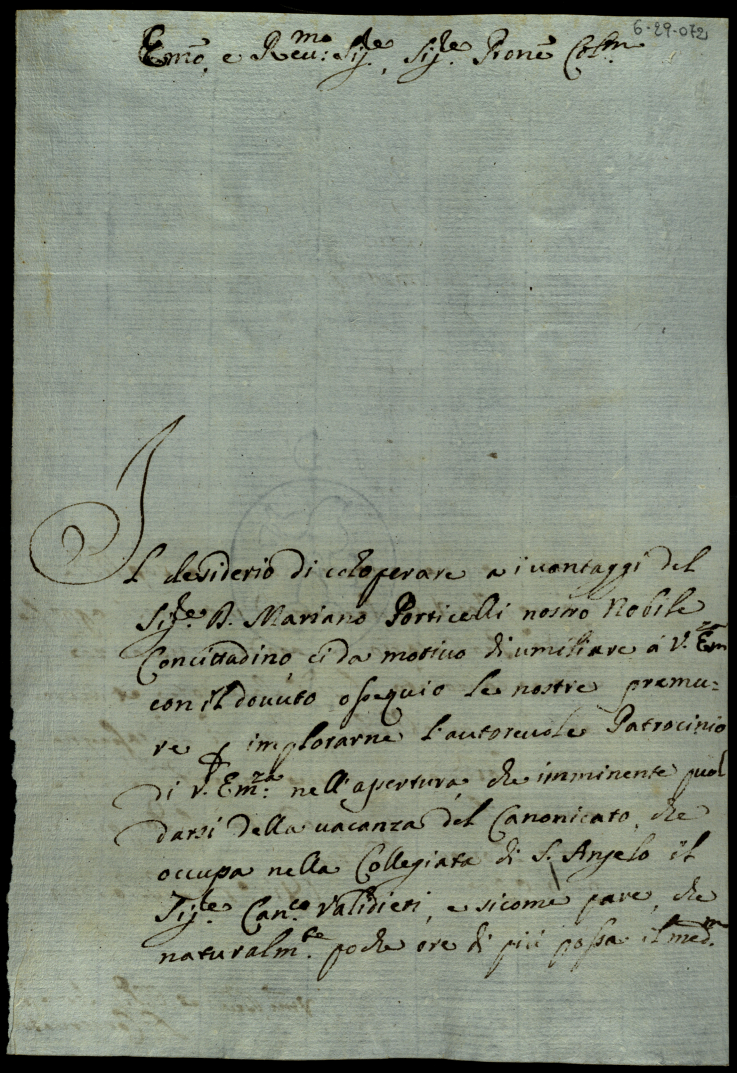 6-29-072
Emo, e Reu:mo Sig.re, Sig.re Prone Col.mo
Il desiderio di cooperare a i vantaggi del
Sig.re D. Mariano Porticelli nostro Nobile
Concittadino ci da motivo di umiliare á V. Em
con il dovuto ossequio le nostre premu-
re p implorarne l'autoreuole Patrocinio
di V. Em:za nell'apertura, che imminente puol
darsi della uacanza del Canonicato, che
occupa nella Collegiata di S. Angelo il
Sig.re Can.co Validieri, e sicome pare, che
naturalm.te poche ore di più possa il med.m